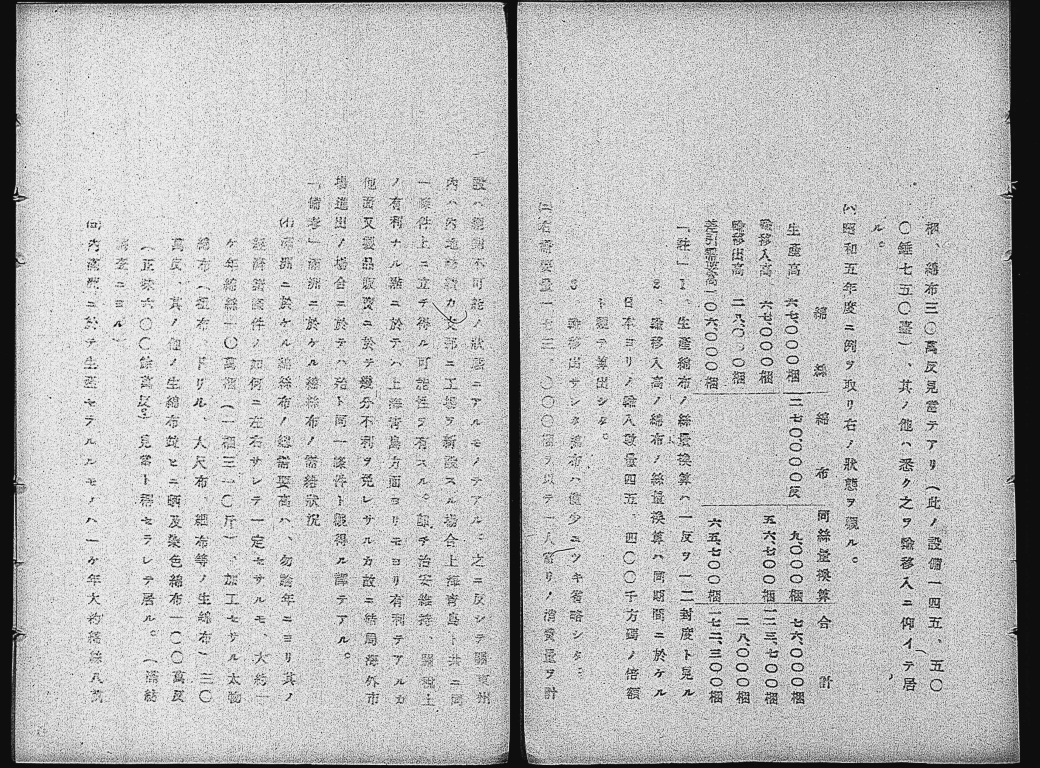 梱、綿布三〇萬反見當テアリ(此ノ設備一四五、五〇
〇錘七五〇臺)、其ノ他ハ悉ク之ヲ輸移入ニ仰イテ居
ル。
(ハ)昭和五年度ニ例ヲ取リ右ノ狀態ヲ觀ル。
綿絲 綿布 同絲量換算 合計
生産高 六七、〇〇〇梱 二七〇、〇〇〇反 九、〇〇〇梱 七六、〇〇〇梱
輸移入高 六七、〇〇〇梱 五六、七〇〇梱 一二三、七〇〇梱
輸移出高 二八、〇〇〇梱 二八、〇〇〇梱
差引需要高 一〇六、〇〇〇梱 六五、七〇〇梱 一七二、三〇〇梱
「註」1、生産綿布ノ絲量換算ハ一反ヲ一二封度ト見ル
2、輸移入高ノ綿布ノ絲量換算ハ同期間ニ於ケル
日本ヨリノ輸入數量四五、四〇〇千方碼ノ倍額
ト觀テ算出シタ。
3、輸移出サレタ綿布ハ僅少ニツキ省略シタ。
(ニ)右需要量一七三、〇〇〇梱ヲ以テ一人當リノ消費量ヲ計
設ハ絶對不可能ノ狀態ニアルモノテアル。之ニ反シテ關東州
内ハ内地紡績カ支那ニ工場ヲ新設スル場合上海靑島ト共ニ同
一條件上ニ立チ得ル可能性ヲ有スル。卽チ治安維持、關稅上
ノ有利ナル點ニ於テハ上海靑島方面ヨリモヨリ有利テアルカ
他面又製品販賣ニ於テ幾分不利ヲ免レサルカ故ニ結局海外市
場進出ノ場合ニ於テハ殆ト同一條件ト觀得ル譯テアル。
「備考」滿洲ニ於ケル綿絲布ノ需給狀況
(イ)滿洲ニ於ケル綿絲布ノ總需要高ハ、勿論年ニヨリ其ノ
經濟諸條件ノ如何ニ左右サレテ一定セサルモ、大約一
ケ年綿絲一〇萬梱(一梱三一〇斤)、加工セサル太物
綿布(粗布、ドリル、大尺布、細布等ノ生綿布)三〇
萬反、其ノ他ノ生綿布並ヒニ晒及染色綿布一〇〇萬反
(正味六〇〇餘萬反)見當ト稱セラレテ居ル。(滿紡
調査ニヨル)
(ロ)内滿洲ニ於テ生産セラルルモノハ一ケ年大約綿絲八萬